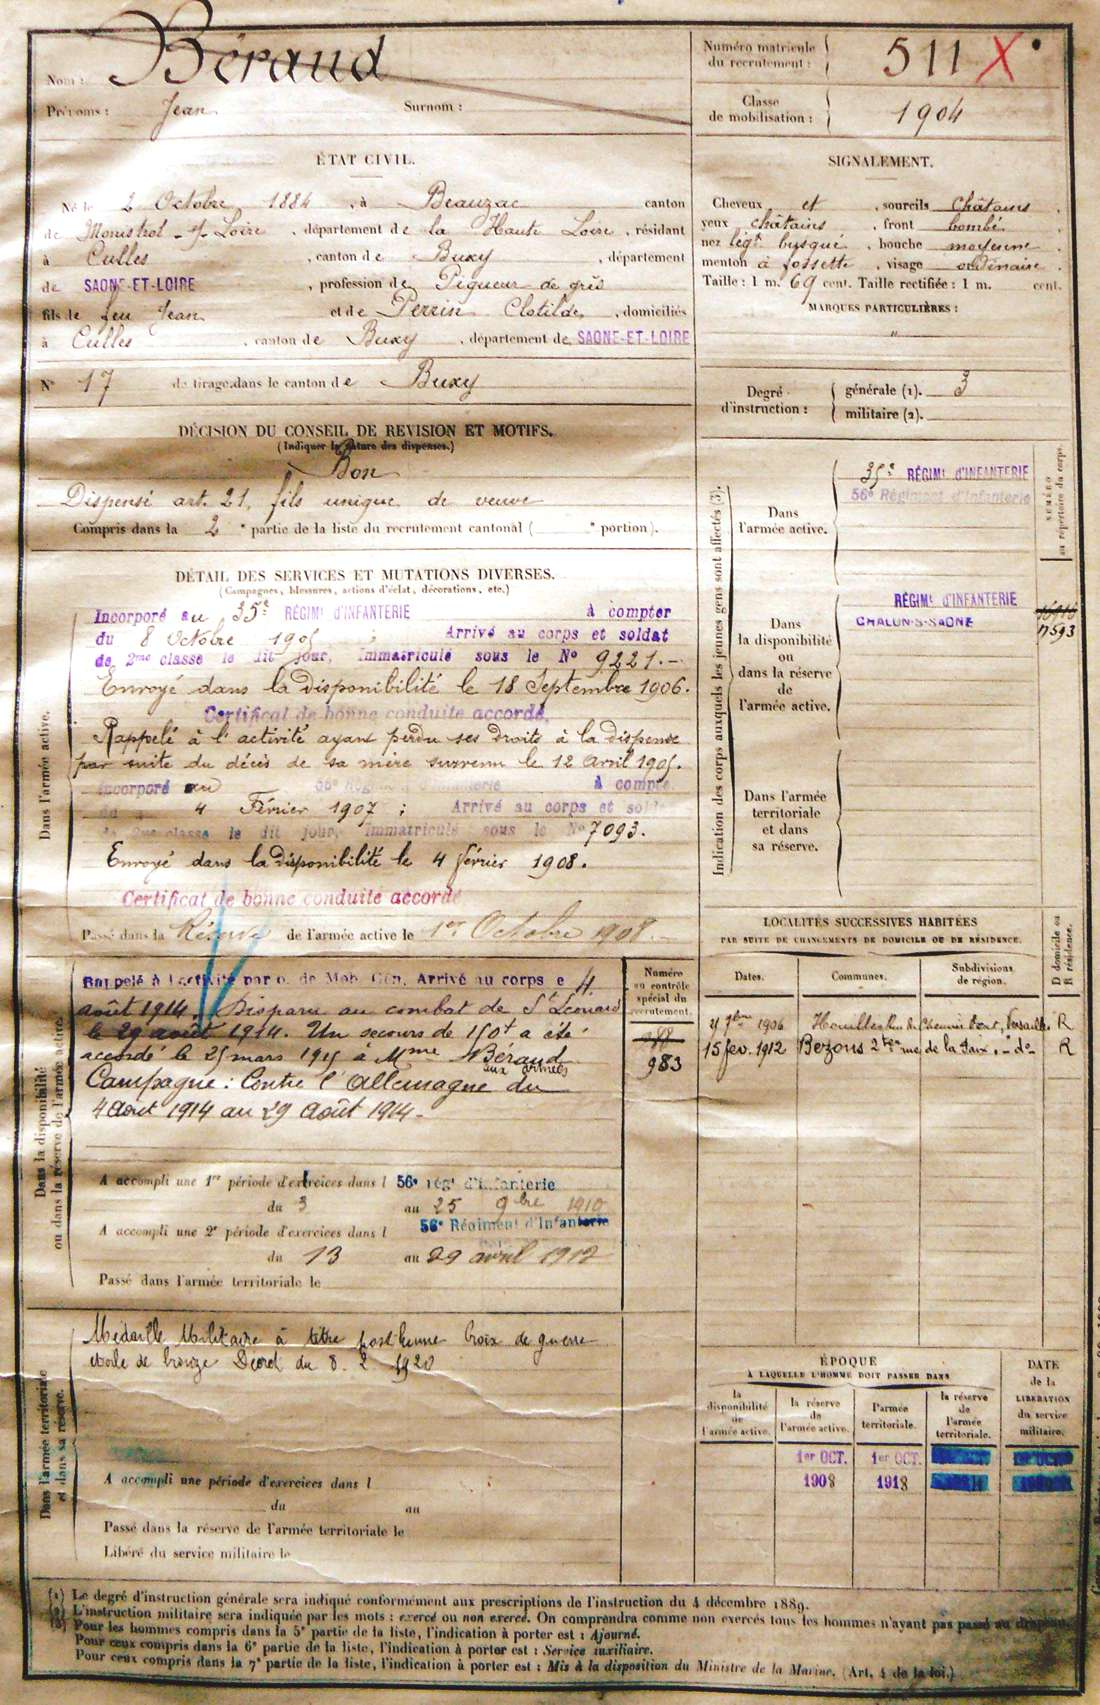 Nom : Béraud
Prénoms : Jean Surnom :
Numéro matricule
du recrutement : 511 X
Classe
de mobilisation : 1904
ÉTAT CIVIL.
Né le 2 Octobre 1884, à Beauzac canton
de Monistrol-s/-Loire, département de la Haute Loire, résidant
à Culles, canton de Buxy, département
de SAONE-ET-LOIRE, profession de Piqueur de grès
fils de feu Jean et de Perrin Clotilde, domiciliés
à Culles, canton de Buxy, département de SAONE-ET-LOIRE
N° 17 de tirage dans le canton de Buxy
SIGNALEMENT.
Cheveux et, sourcils châtains
yeux châtains, front bombé
nez légt busqué, bouche moyenne
menton à fossette, visage ordinaire
Taille : 1 m. 69 cent. Taille rectifiée : 1 m. cent.
MARQUES PARTICULIÈRES :
"
Degré
d'instruction :
générale (1). 3
militaire (2).
DÉCISION DU CONSEIL DE REVISION ET MOTIFS.
(Indiquer la nature des dispenses.)
Bon
Dispensé art. 21, fils unique de veuve
Compris dans la 2e partie de la liste du recrutement cantonal ( e portion).
DÉTAIL DES SERVICES ET MUTATIONS DIVERSES.
(Campagnes, blessures, actions d'éclat, décorations, etc.)
Dans l'armée active.
Incorporé au 35e RÉGIMt D'INFANTERIE à compter
du 8 Octobre 1905 ; Arrivé au corps et soldat
de 2me classe le dit jour, Immatriculé sous le No 9221.-
Envoyé dans la disponibilité le 18 Septembre 1906.
Certificat de bonne conduite accordé.
Rappelé à l'activité ayant perdu ses droits à la dispense
par suite du décès de sa mère survenu le 12 avril 1905.
Incorporé au 56e Régiment d'Infanterie à compter
du 4 Février 1907 ; Arrivé au corps et soldat
de 2me classe le dit jour, Immatriculé sous le No 7093.
Envoyé dans la disponibilité le 4 février 1908.
Certificat de bonne conduite accordé
Passé dans la Réserve de l'armée active le 1er Octobre 1908.
Indication des corps auxquels les jeunes gens sont affectés (3).
Dans
l'armée active.
35e RÉGIMt D'INFANTERIE
56e Régiment d'Infanterie
NUMÉRO
au répertoire du corps
Dans
la disponibilité
ou
dans la réserve
de
l'armée active.
RÉGIMt D'INFANTERIE
CHALON-S-SAONE
17593
Dans l'armée
territoriale
et dans
sa réserve.
Dans la disponibilité
ou dans la réserve de l'armée active.
Rappelé à l'activité par o. de Mob. Gén. Arrivé au corps le 4
août 1914. Disparu au combat de St Léonard
le 29 août 1914. Un secours de 150f a été
accordé le 25 mars 1915 à Mme Béraud
aux armées
Campagne : Contre l'allemagne du
4 Août 1914 au 29 Août 1914-
Numéro
au contrôle
spécial du
recrutement.
983
A accompli une 1re période d'exercices dans l 56e régt d'infanterie
du 3 au 25 9bre 1910
A accompli une 2e période d'exercices dans l 56e Régiment d'Infanterie
du 13 au 29 avril 1912
Passé dans l'armée territoriale le
LOCALITÉS SUCCESSIVES HABITÉES
PAR SUITE DE CHANGEMENTS DE DOMICILE OU DE RÉSIDENCE.
D domicile ou
R résidence.
Dates. Communes. Subdivisions
de région.
9bre 1906 Houilles Versailles R
15 fev. 1912 Bezons rue de la Paix, -do- R
Dans l'armée territoriale
et dans sa réserve.
Médaille Militaire à titre posthume Croix de guerre
étoile de bronze Décret du 8. 2 1920
A accompli une période d'exercices dans l
du au
Passé dans la réserve de l'armée territoriale le
Libéré du service militaire le
ÉPOQUE
A LAQUELLE L'HOMME DOIT PASSER DANS
la
disponibilité
de
l'armée active.
la réserve
de
l'armée active.
l'armée
territoriale.
la réserve
de
l'armée
territoriale.
DATE
de la
LIBÉRATION
du service
militaire.
1er OCT. 1er OCT.
1908 1918
(1) Le degré d'instruction générale sera indiqué conformément aux prescriptions de l'instruction du 4 décembre 1889.
(2) L'instruction militaire sera indiquée par les mots : exercé ou non exercé. On comprendra comme non exercés tous les hommes n'ayant pas passé au drapeau.
(3) Pour les hommes compris dans la 5e partie de la liste, l'indication à porter est : Ajourné.
Pour ceux compris dans la 6e partie de la liste, l'indication à porter est : Service auxiliaire.
Pour ceux compris dans la 7e partie de la liste, l'indication à porter est : Mis à la disposition du Ministre de la Marine. (Art. 4 de la loi.)